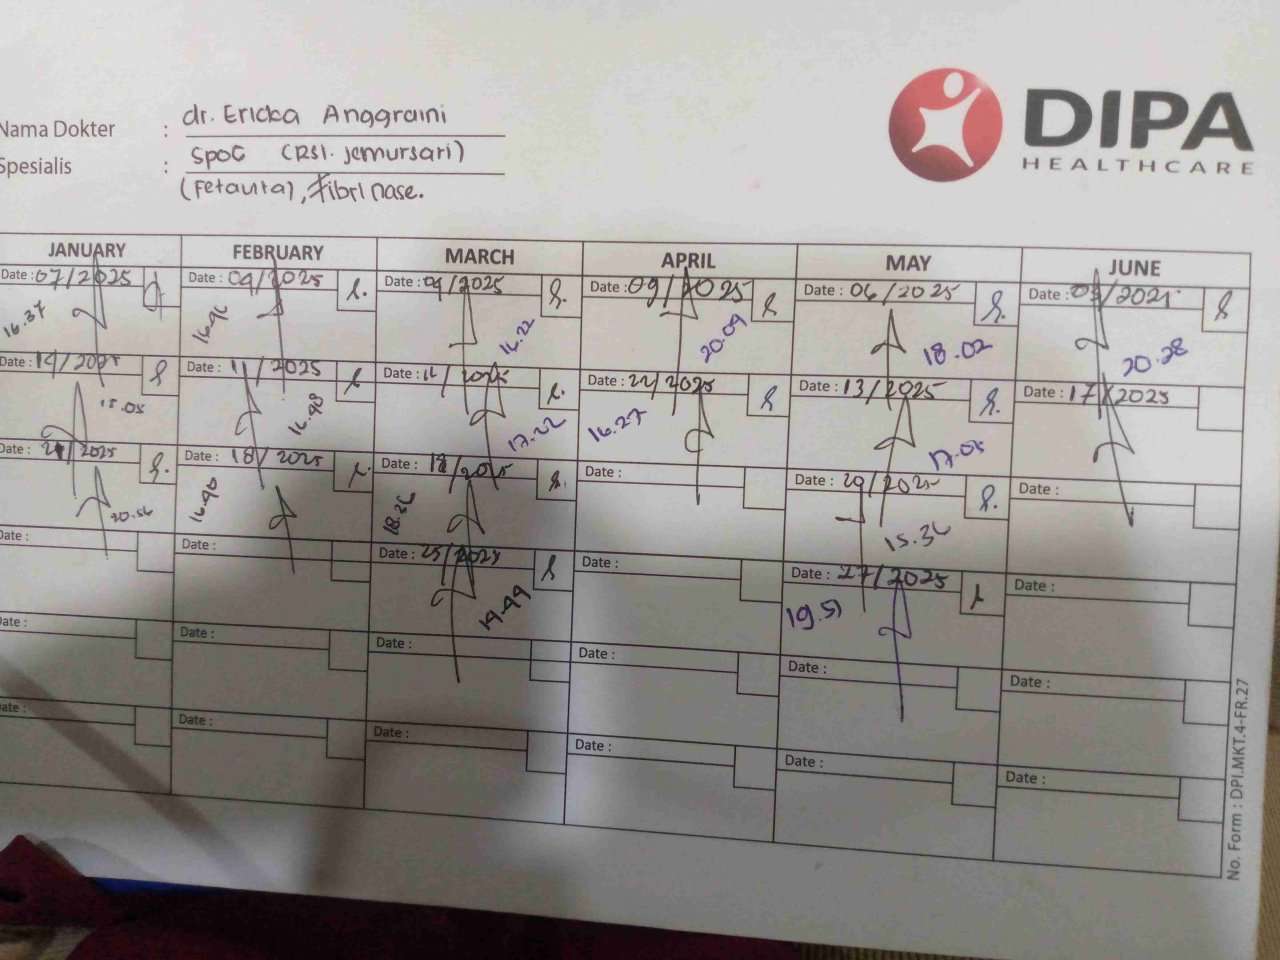 DIPA
HEALTHCARE
Nama Dokter : dr. Ericka Anggraini
Spesialis : SpOG (RSI. Jemursari)
(Fetavita), Fibrinase.
JANUARY FEBRUARY MARCH APRIL MAY JUNE
Date : 07/2025 Date : 04/2025 Date : 04/2025 Date : 09/2025 Date : 06/2025 Date : 03/2025
16.37 16.22 20.09 18.02 20.28
Date : 14/2025 Date : 11/2025 Date : 11/2025 Date : 22/2025 Date : 13/2025 Date : 17/2025
15.05 16.48 17.22 16.27 17.05
Date : 21/2025 Date : 18/2025 Date : 18/2025 Date : Date : 20/2025 Date :
20.56 16.40 18.26 15.36
Date : Date : Date : 25/2025 Date : Date : 27/2025 Date :
19.49 19.51
Date : Date : Date : Date : Date : Date :
Date : Date : Date : Date : Date : Date :
No. Form : DPI.MKT.4-FR.27